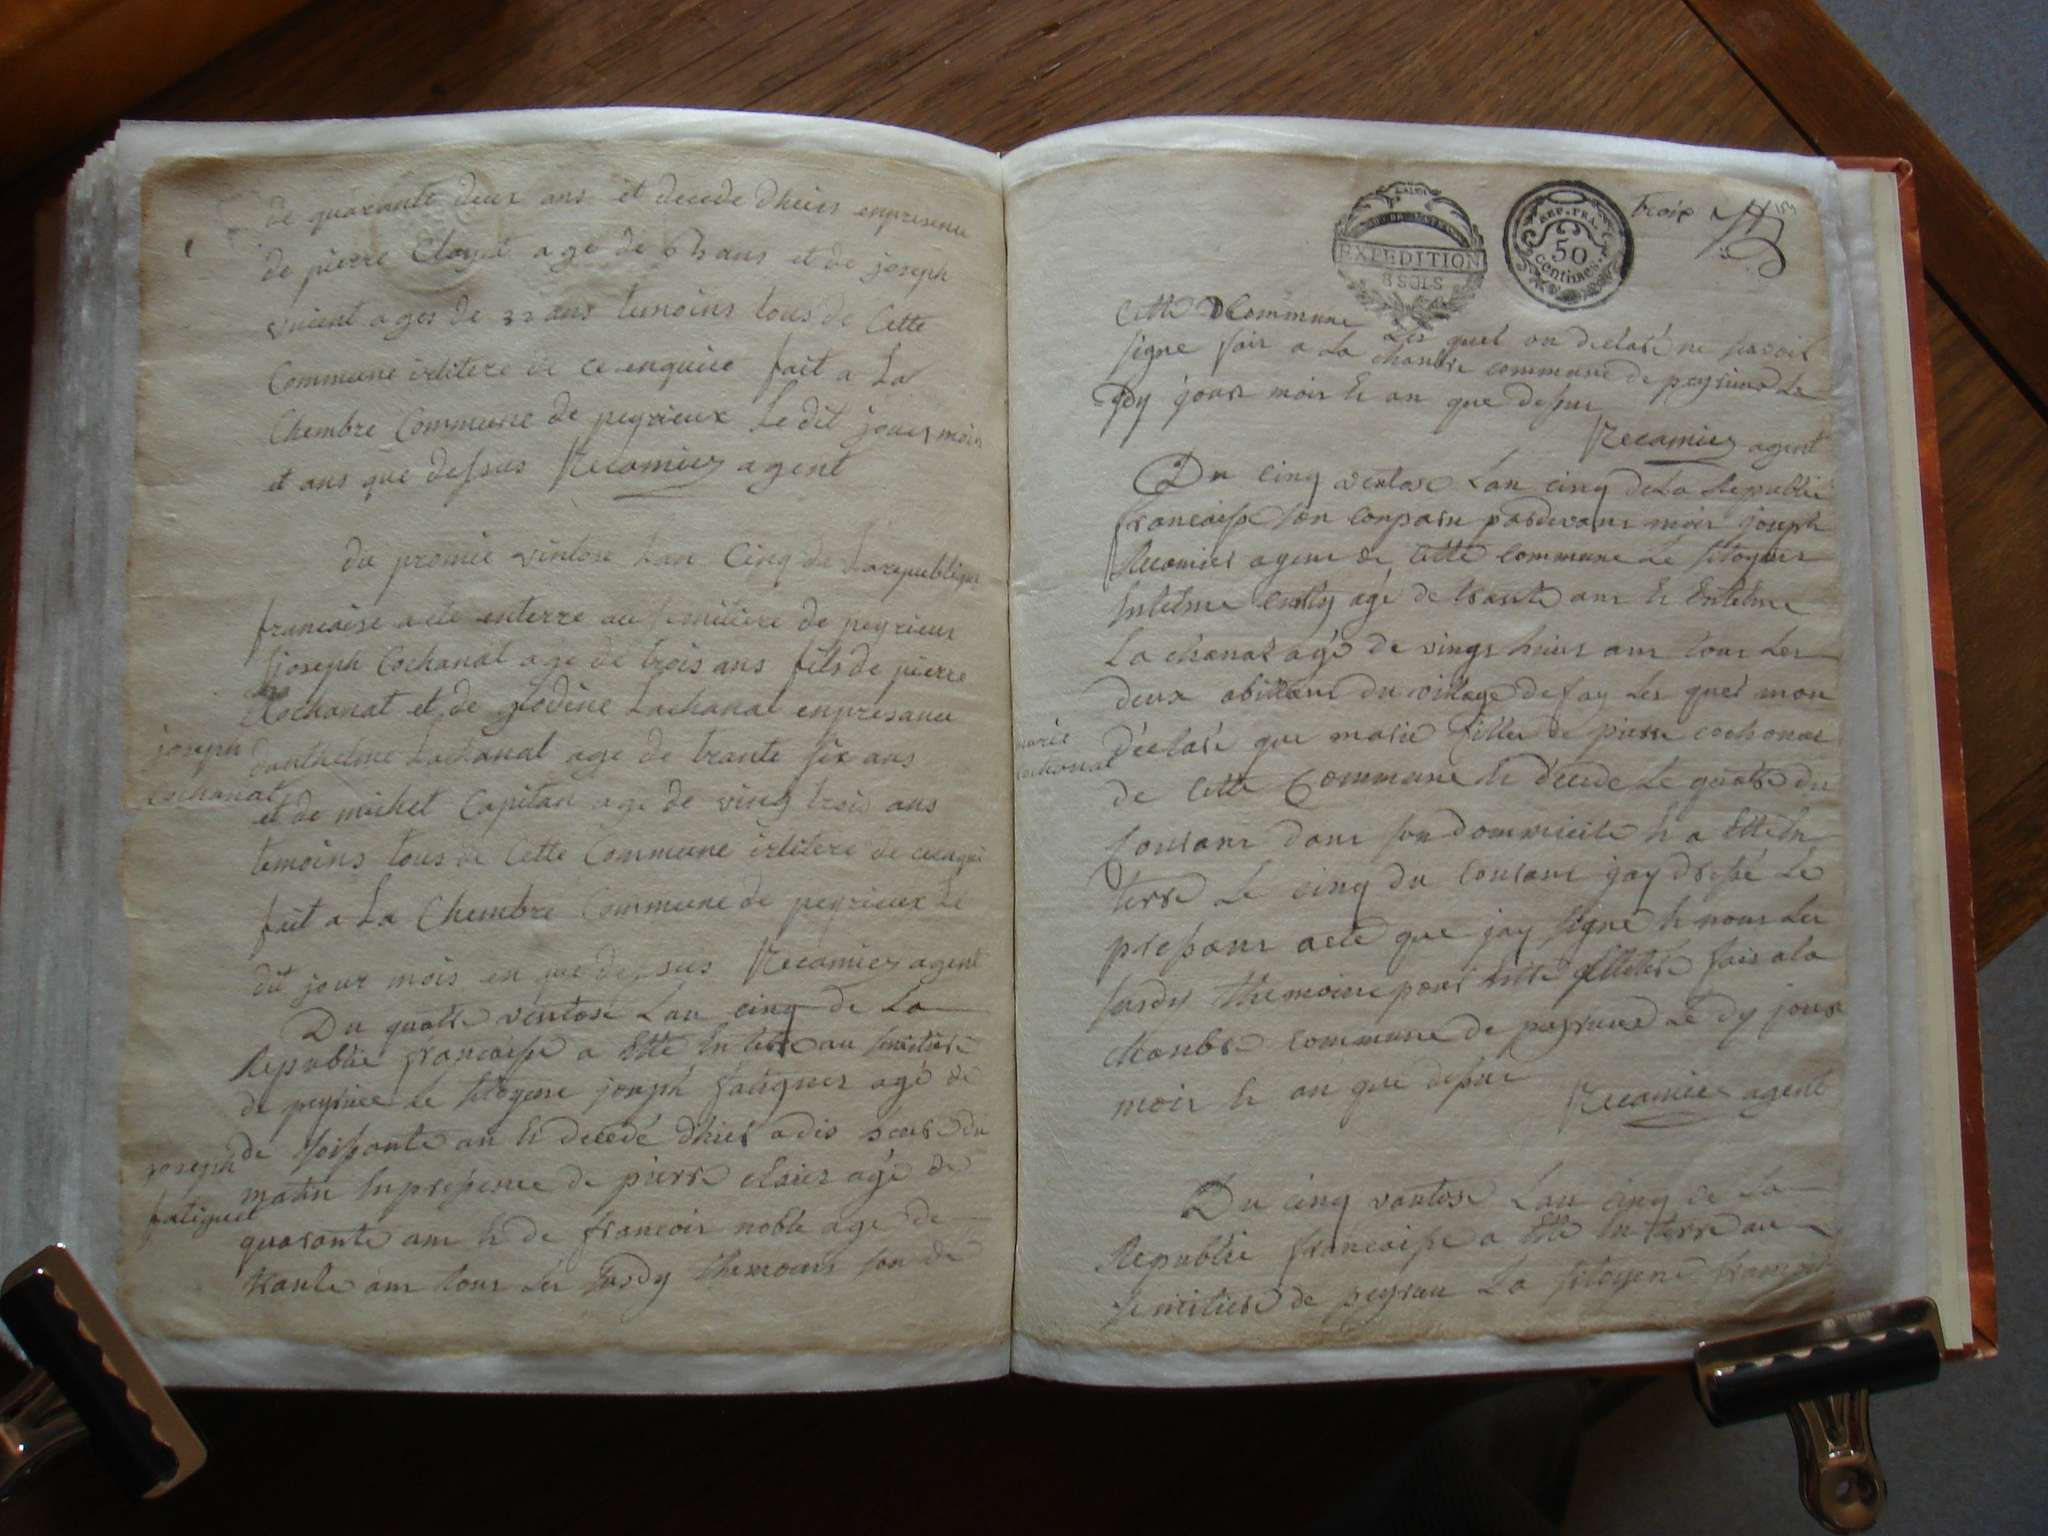 de quarante deux ans et decede dhiers enpresence
de pierre Cloyet age de 63 ans et de joseph
vuient ages de 32 ans temoins tous de Cette
Commune irlitere de ce enquise fait a La
Chembre Commune de peyrieux Le dit jours mois
et ans que dessus Recamier agent
du promie vintose Lan Cinq de Larepublique
francaise a ete enterre au semitiere de peyrieux
joseph Cochanat age de trois ans fils de pierre
Cochanat et de glodine Lachanal enpresance
joseph
Cochanat
danthelme Lachanal age de trante six ans
et de michel Capitan age de ving trois ans
temoins tous de Cette Commune irlitere de
fait a La Chembre Commune de peyrieux Le
dit jour mois en que dessus Recamier agent
Du quatre ventose Lan cinq de La
Republie francaise a Ette Enterre au semitiere
de peyrieu Le sitoyens joseph fatiguet agé de
joseph
fatiguet
de soissante an Et decedé dhier a dis heure du
matin Enpresence de pierre agé de
quarante ans Et de francois noble age de
trante ans tous Les susdy themoins tou de
EXPEDITION
8 SOLS
REP. FRA.
50
Centimes
trois
Cette Commune Les quel on declaré ne savoir
signe fair a La chanbre commune de peyrieux Le
dy jour mois Et an que desus
Recamier agent
Du cinq ventose Lan cinq de La Republie
francaisse son conparu pardevans mois joseph
Recamier agent de cette commune Le sitoyens
Entelme agé de trante ans Et Entelme
La chanal agé de vingt huis ans tous Les
deux abittans du village de fay Les quel mon
marie
cochonat
déclaré que marie fille de pierre cochonat
de cette Commune Et décede Le quatre du
courans dans son dommicile Et a Ette En
terre Le cinq du courans jay dressé Le
pressans acte que jay signe Et nous Les
susdy themoins pour Estre fais a la
chanbre commune de peyrieux Le dy jour
mois Et an que desus
Recamier agent
Du cinq vantose Lan cinq de La
Republie francaisse a Ette Enterre au
semitiere de peyrieu La sitoyene